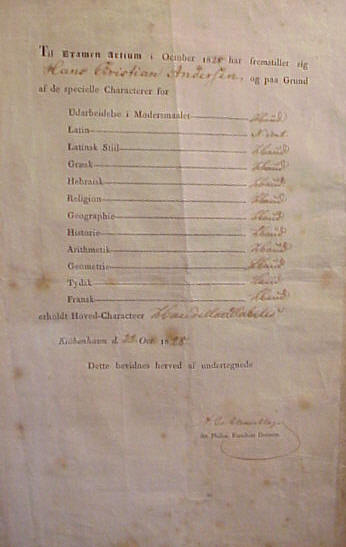 Til Examen Artium i October 1828 har fremstillet sig
Hans Christian Andersen, og paa Grund
af de specielle Characterer for
Udarbeidelse i Modersmaalet Haud
Latin
Latinsk Stiil Haud
Græsk Haud
Hebraisk Haud
Religion Haud
Geographie Haud
Historie Haud
Arithmetik Haud
Geometrie Haud
Tydsk Haud
Fransk Haud
erholdt Hoved-Characteer Haudillaudabilis
Kiöbenhavn d. 22 Oct. 1828
Dette bevidnes herved af undertegnede
det Philos. Facultets Decanus.